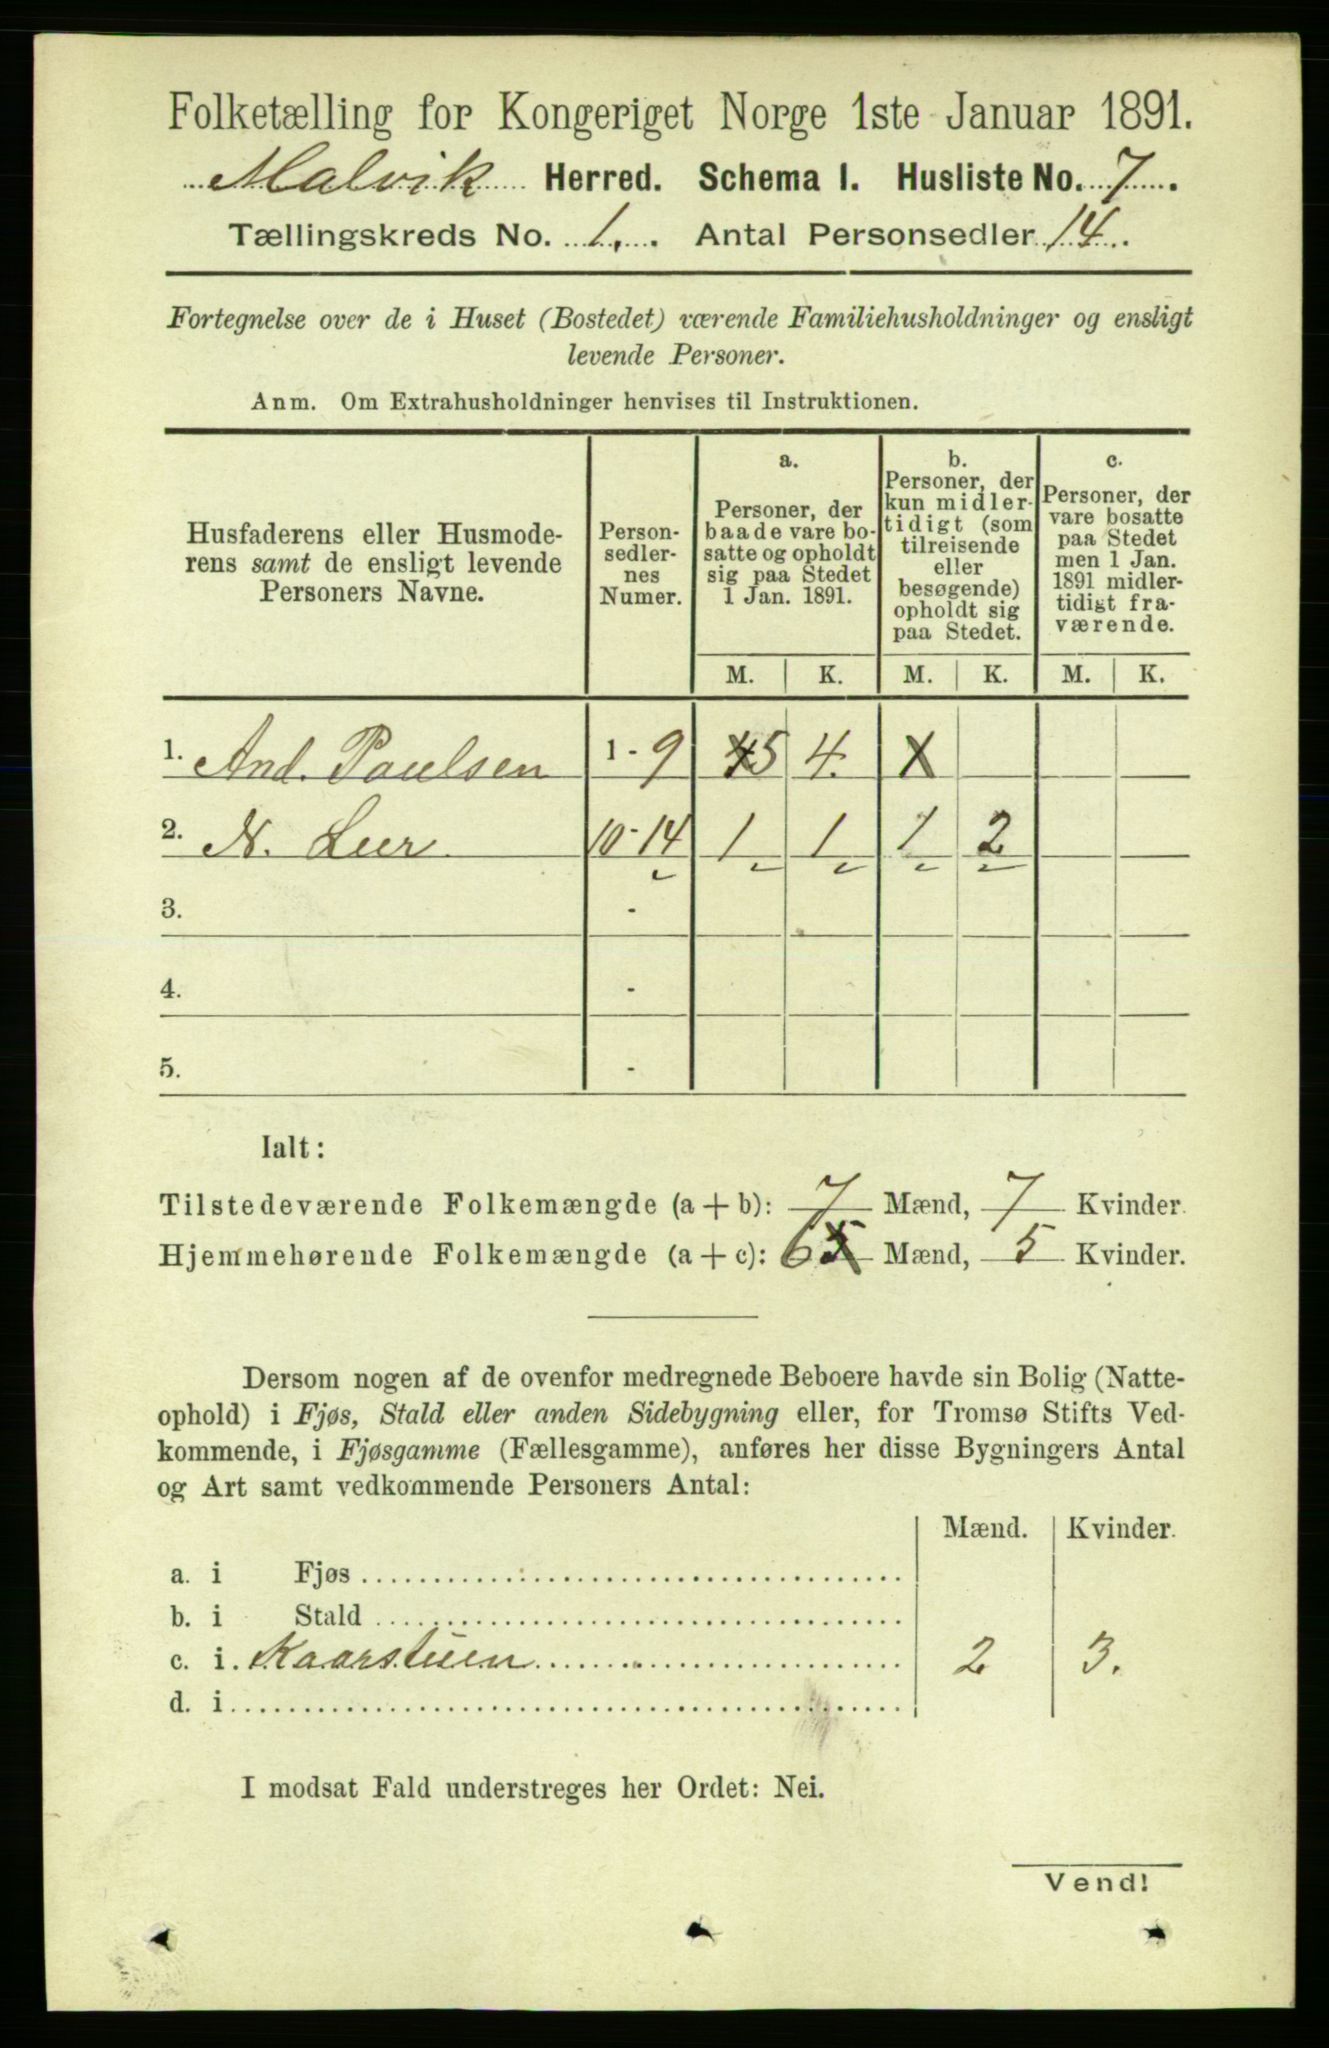 Folketælling for Kongeriget Norge 1ste Januar 1891.
Malvik Herred. Schema I. Husliste No. 7.
Tællingskreds No. 1. Antal Personsedler 14.
Fortegnelse over de i Huset (Bostedet) værende Familiehusholdninger og ensligt
levende Personer.
Anm. Om Extrahusholdninger henvises til Instruktionen.
Husfaderens eller Husmode-
rens samt de ensligt levende
Personers Navne.
Person-
sedler-
nes
Numer.
a.
Personer, der
baade vare bo-
satte og opholdt
sig paa Stedet
1 Jan. 1891.
b.
Personer, der
kun midler-
tidigt (som
tilreisende
eller
besøgende)
opholdt sig
paa Stedet.
c.
Personer, der
vare bosatte
paa Stedet
men 1 Jan.
1891 midler-
tidigt fra-
værende.
M. K. M. K. M. K.
1. And. Paulsen 1 - 9 5 4.
2. N. Luer 10 - 14 1 1 1 2
3. -
4. -
5. -
Ialt:
Tilstedeværende Folkemængde (a + b): 7 Mænd, 7 Kvinder.
Hjemmehørende Folkemængde (a + c): 65 Mænd, 5 Kvinder.
Dersom nogen af de ovenfor medregnede Beboere havde sin Bolig (Natte-
ophold) i Fjøs, Stald eller anden Sidebygning eller, for Tromsø Stifts Ved-
kommende, i Fjøsgamme (Fællesgamme), anføres her disse Bygningers Antal
og Art samt vedkommende Personers Antal:
Mænd. Kvinder.
a. i Fjøs
b. i Stald
c. i Kaarstuen 2 3.
d. i
I modsat Fald understreges her Ordet: Nei.
Vend!